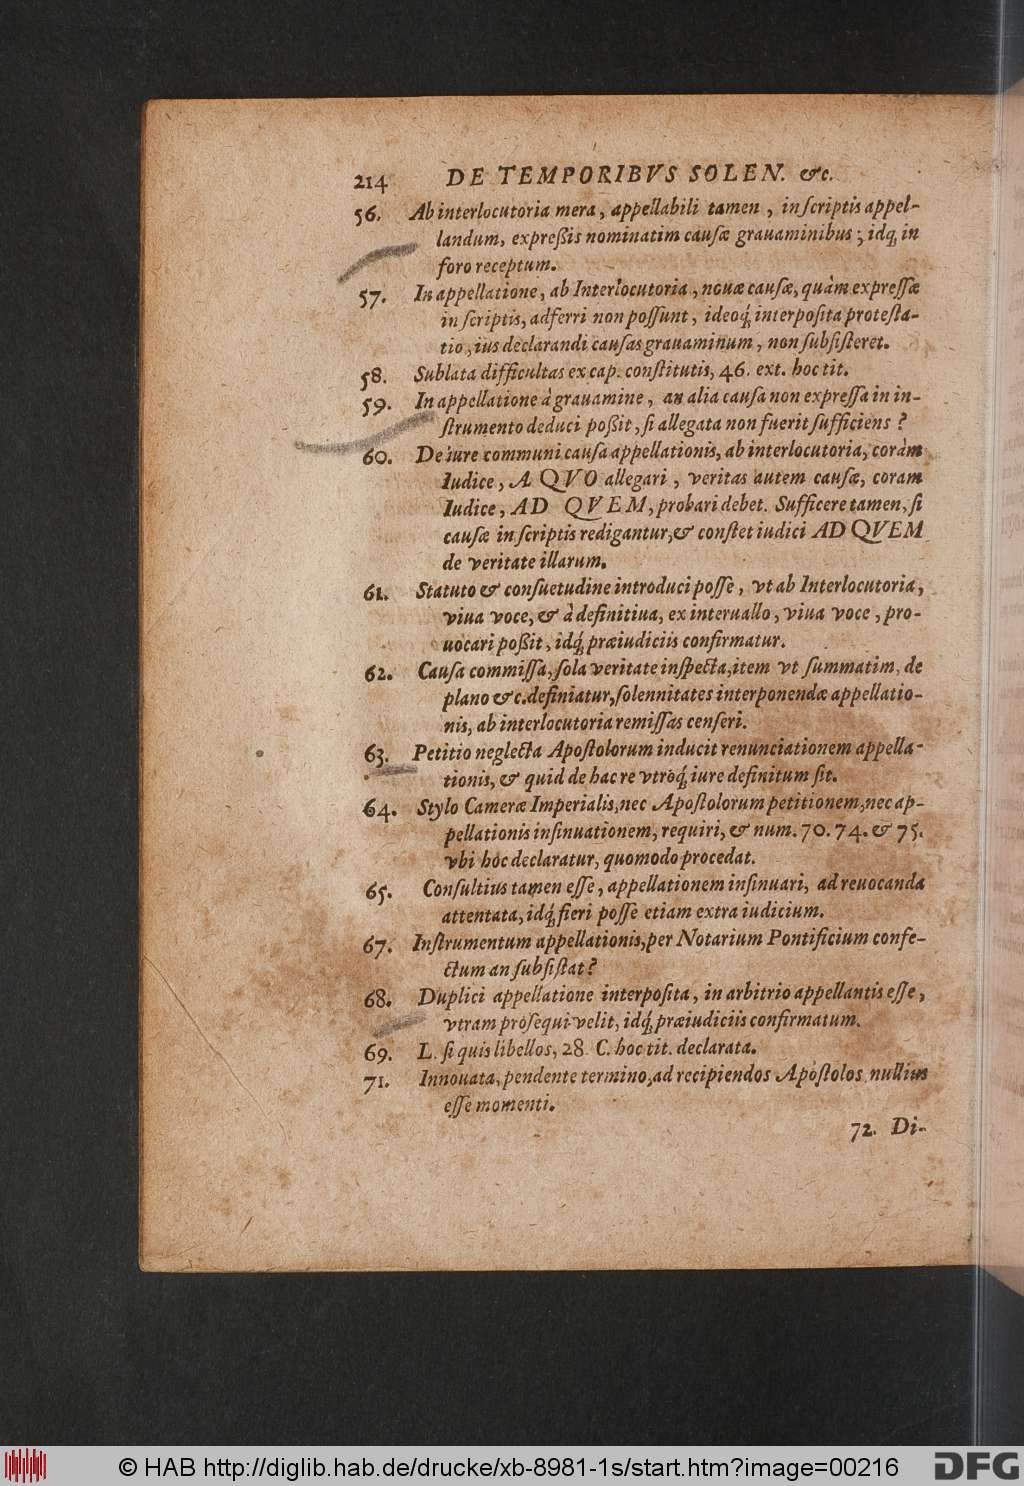 214 DE TEMPORIBVS SOLEN. &c.
56. Ab interlocutoria mera, appellabili tamen, in ſcriptis appel-
landum, expreßis nominatim cauſæ grauaminibus; idq́ in
foro receptum.
57. In appellatione, ab Interlocutoria, nouæ cauſæ, quàm expreſſæ
in ſcriptis, adferri non poſſunt, ideoq́ interpoſita proteſta-
tio, ius declarandi cauſas grauaminum, non ſubſiſteret.
58. Sublata difficultas ex cap. conſtitutis, 46. ext. hoc tit.
59. In appellatione à grauamine, an alia cauſa non expreſſa in in-
ſtrumento deduci poßit, ſi allegata non fuerit ſufficiens?
60. De iure communi cauſa appellationis, ab interlocutoria, coràm
Iudice, A QVO allegari, veritas autem cauſæ, coram
Iudice, AD QVEM, probari debet. Sufficere tamen, ſi
cauſæ in ſcriptis redigantur, & conſtet iudici AD QVEM
de veritate illarum.
61. Statuto & conſuetudine introduci poſſe, vt ab Interlocutoria,
viua voce, & à definitiua, ex interuallo, viua voce, pro-
uocari poßit, idq́ præiudiciis confirmatur.
62. Cauſa commiſſa, ſola veritate inſpecta, item vt ſummatim, de
plano &c. definiatur, ſolennitates interponendæ appellatio-
nis, ab interlocutoria remiſſas cenſeri.
63. Petitio neglecta Apoſtolorum inducit renunciationem appella-
tionis, & quid de hac re vtroq́ iure definitum ſit.
64. Stylo Cameræ Imperialis, nec Apoſtolorum petitionem, nec ap-
pellationis inſinuationem, requiri, & num. 70. 74. & 75.
vbi hoc declaratur, quomodo procedat.
65. Conſultius tamen eſſe, appellationem inſinuari, ad reuocanda
attentata, idq́ fieri poſſe etiam extra iudicium.
67. Inſtrumentum appellationis, per Notarium Pontificium confe-
ctum an ſubſiſtat?
68. Duplici appellatione interpoſita, in arbitrio appellantis eſſe,
vtram proſequi velit, idq́ præiudiciis confirmatum.
69. L. ſi quis libellos, 28. C. hoc tit. declarata.
71. Innouata, pendente termino, ad recipiendos Apoſtolos nullius
eſſe momenti.
72. Di-
© HAB http://diglib.hab.de/drucke/xb-8981-1s/start.htm?image=00216
DFG